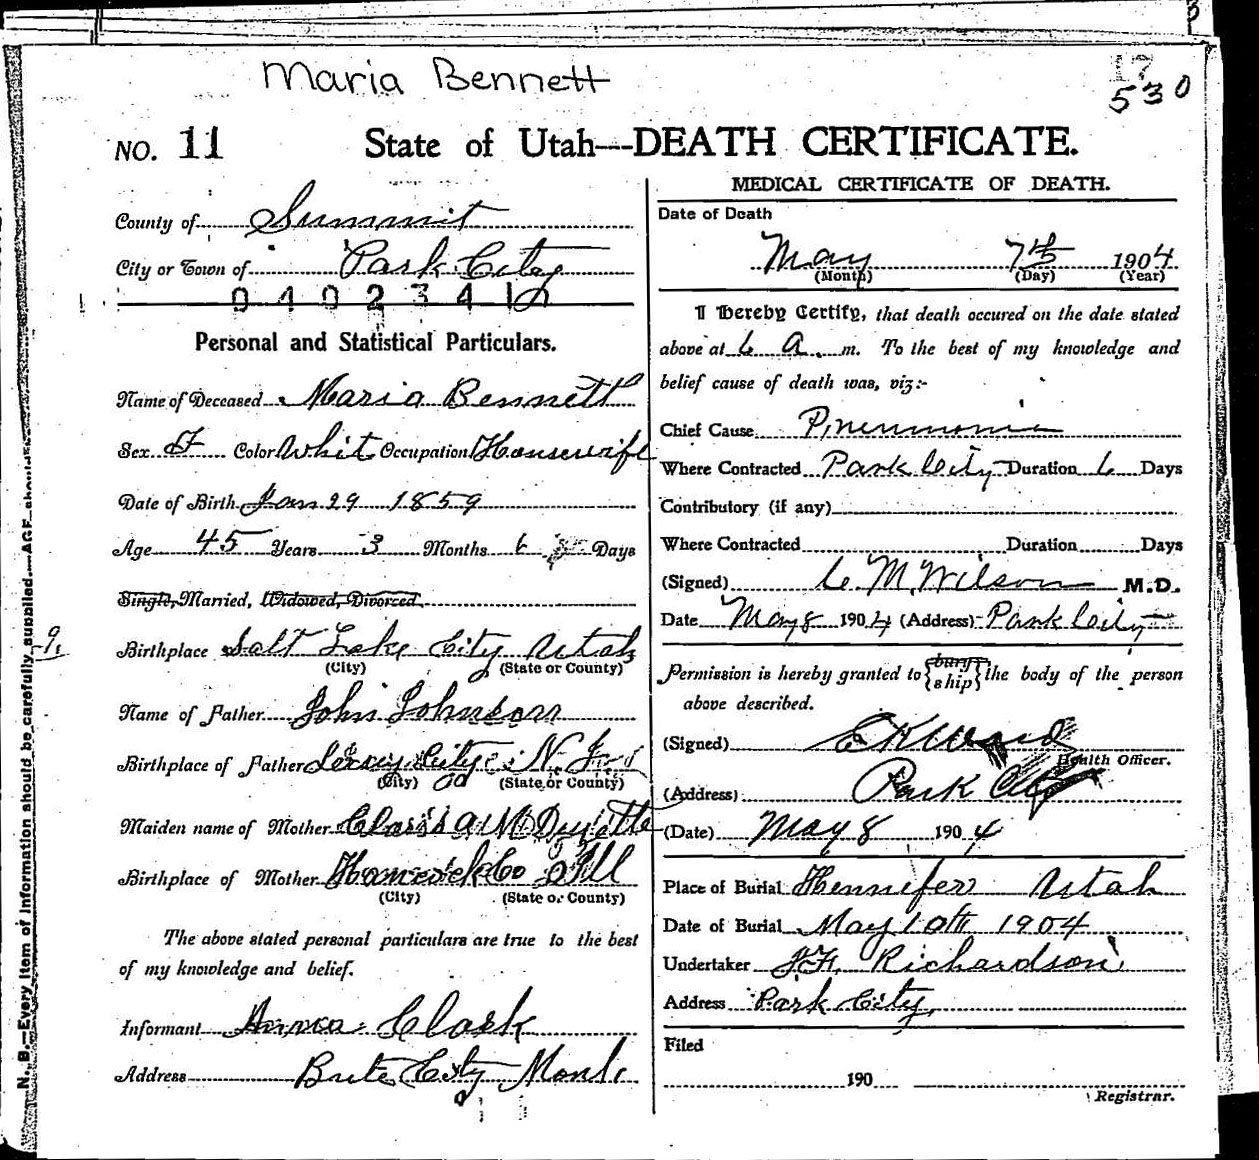 Maria Bennett
530
NO. 11 State of Utah---DEATH CERTIFICATE.
County of Summit
City or Town of Park City
0402341
Personal and Statistical Particulars.
Name of Deceased Maria Bennett
Sex F Color Whit Occupation Housewife
Date of Birth Jan 29 1859
Age 45 Years 3 Months 6 Days
Single, Married, Widowed, Divorced.
9.
Birthplace Salt Lake City Utah
(City) (State or County)
Name of Father John Johnson
Birthplace of Father City N.
(City) (State or County)
Maiden name of Mother
Birthplace of Mother Co Ill
(City) (State or County)
The above stated personal particulars are true to the best
of my knowledge and belief.
Informant Anna Clark
Address Bute City Mont.
MEDICAL CERTIFICATE OF DEATH.
Date of Death
May 7th 1904
(Month) (Day) (Year)
I Hereby Certify, that death occured on the date stated
above at 6 a. m. To the best of my knowledge and
belief cause of death was, viz:-
Chief Cause Pneumonia
Where Contracted Park City Duration 6 Days
Contributory (if any)
Where Contracted Duration Days
(Signed) C. M. Wilson M.D.
Date May 8 1904 (Address) Park City
Permission is hereby granted to {bury ship} the body of the person
above described.
(Signed) E K Ward
Health Officer.
(Address) Park City
(Date) May 8 1904
Place of Burial Hennifer Utah
Date of Burial May 10th 1904
Undertaker Richardson
Address Park City
Filed
190
Registrar.
N. B.—Every item of information should be carefully supplied. AGE should